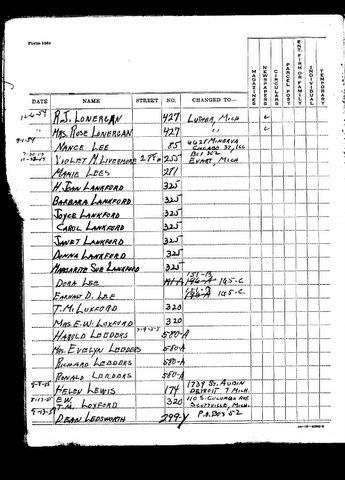 Form 1564
MAGAZINES
NEWSPAPERS
CIRCULARS
PARCEL POST
ENT. FIRM OR FAMILY
INDIVIDUAL
TEMPORARY
DATE NAME STREET NO. CHANGED TO—
R.J. LONERGAN 427 LUTHER, MICH
" MRS. ROSE LONERGAN 427 "
NANCE LEE 85 4628 MINERVA
CHICAGO 37, ILL
VIOLET M LIVERMORE 255 BOX 352
EVART, MICH
MAMIE LEES 281
H. JOAN LANKFORD 325
BARBARA LANKFORD 325
JOYCE LANKFORD 325
CAROL LANKFORD 325
JANET LANKFORD 325
DONNA LANKFORD 325
MARGARITE SUE LANKFORD 325
DORA LEE 141-A 151-B
196-A 195-C
EARNEST D. LEE 151-B
196-A 195-C
T.M. LUXFORD 320
MRS E.W. LOXFORD 320
HAROLD LEEDERS 580-A
MRS EVELYN LEEDERS 580-A
RICHARD LEEDERS 580-A
RONALD LEEDERS 580-A
HELEN LEWIS 174 1739 ST. AUBIN
DETROIT 7 MICH.
E.W. T.M. LOXFORD 320 110 S. COLUMBIA AVE
SCOTTVILLE, MICH.
DEAN LEDSWORTH 299-Y P.O. BOX 52